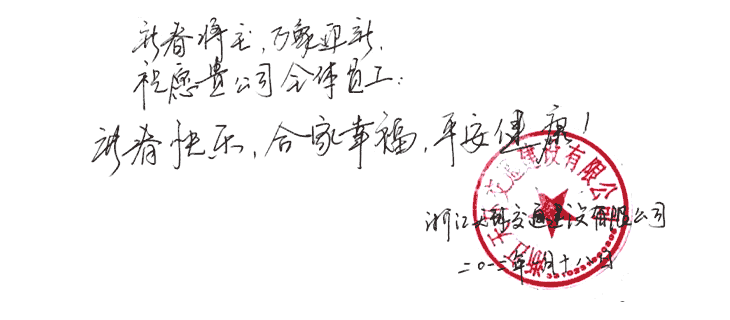 新春将至，万象更新，
祝愿贵公司全体员工：
新春快乐，合家幸福，平安健康！
浙江交通建设有限公司
二〇一二年月十八日